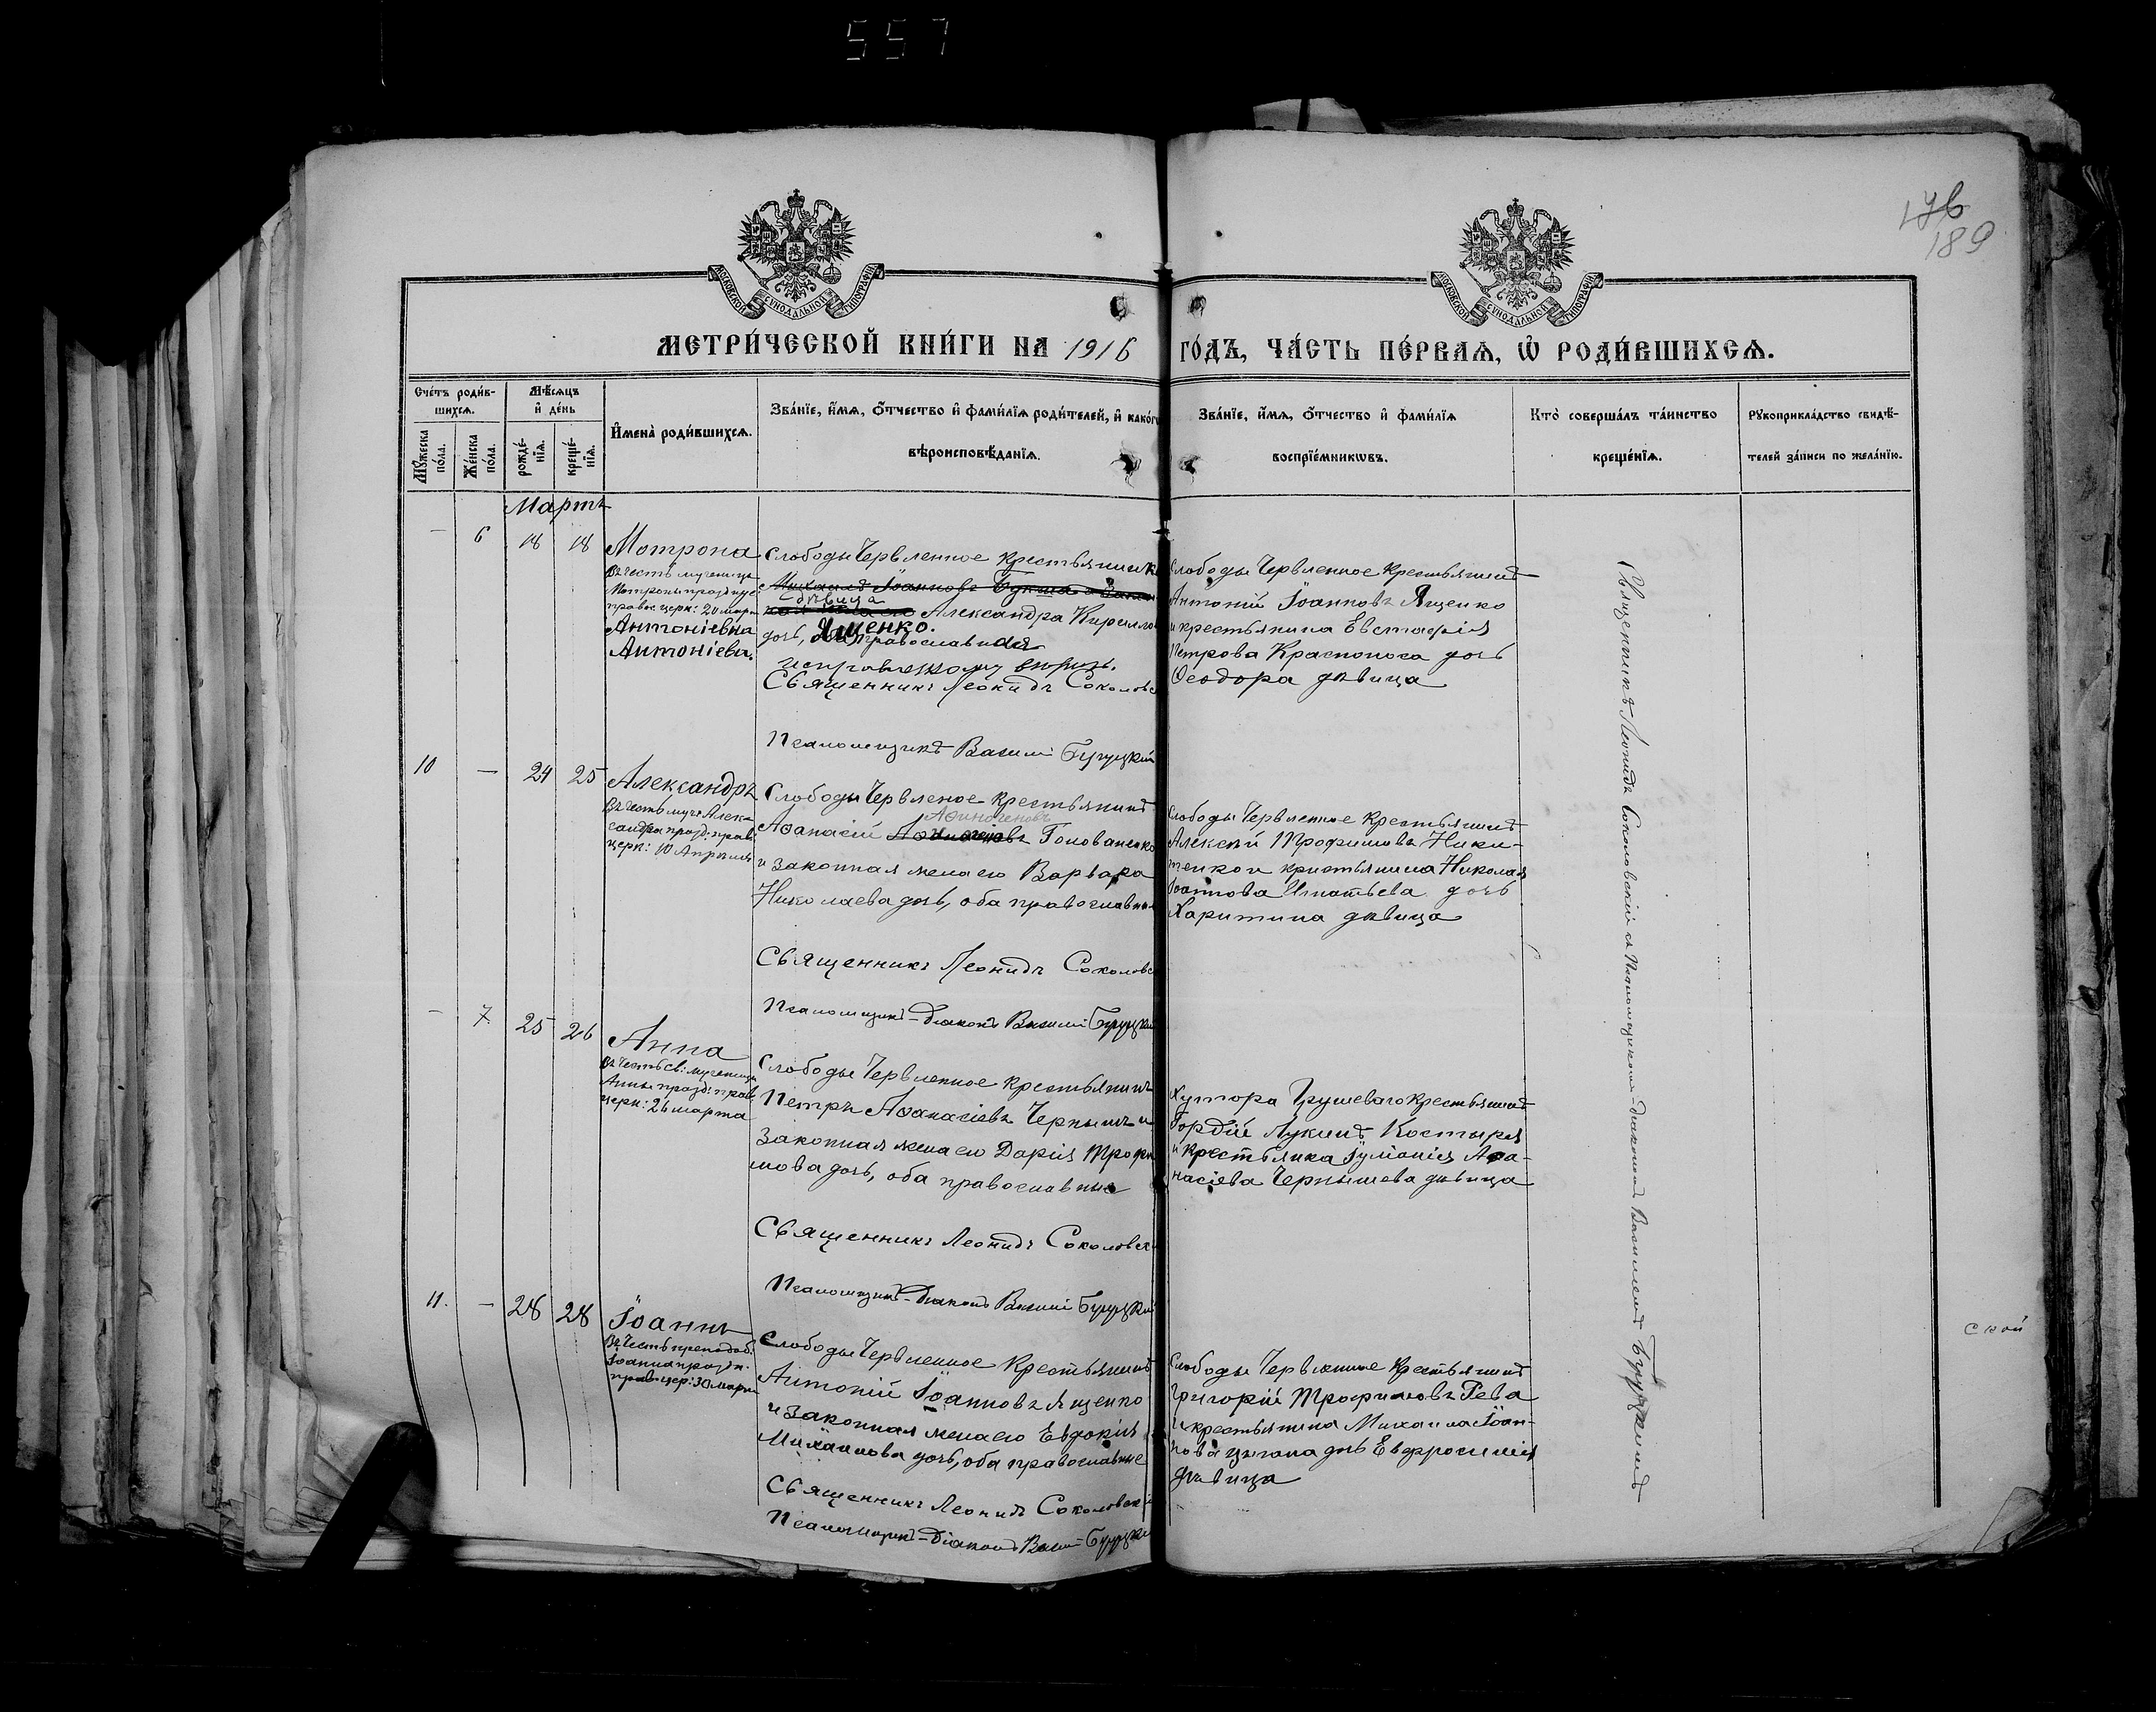 557
176
189
МОСКОВСКОЙ СУНОДАЛЬНОЙ ТИПОГРАФІИ
МОСКОВСКОЙ СУНОДАЛЬНОЙ ТИПОГРАФІИ
МЕТРИ́ЧЕСКОЙ КНИ́ГИ НА 1916 ГО́ДЪ, ЧА́СТЬ ПЕ́РВАѦ, Ѡ҆ РОДИ́ВШИХСѦ.
Сче́тъ роди́в-
шихсѧ.
Мꙋ́жеска по́ла.
Же́нска по́ла.
Мѣ́сѧцъ
и҆ де́нь
рожде́-
нїѧ.
креще́-
нїѧ.
И҆мена̀ роди́вшихсѧ.
Зва́нїе, и҆́мѧ, ѻ҆́тчество и҆ фами́лїѧ роди́телей, и҆ како́гѡ
вѣроисповѣ́данїѧ.
Зва́нїе, и҆́мѧ, ѻ҆́тчество и҆ фами́лїѧ
воспрїе́мникѡвъ.
Кто̀ соверша́лъ та́инство
креще́нїѧ.
Рꙋкоприкла́дство свидѣ́-
телей за́писи по жела́нїю.
Мартъ
— 6 18 18
Мотрона
Въ честь мученицы
Мотроны празднуе
правос. церк: 20 мар
Антоніевна
Антоніевъ
Слободы Червленное крестьянинъ
Михаилъ Іоанновъ
дѣвица
Александра Кирилло
дочь, Ященко. православная
Священникъ Леонидъ Соколовс
Псаломщикъ Василій Бугуцкій
Слободы Червленное крестьянинъ
Антоній Іоанновъ Ященко
и крестьянина Евстафія
Петрова Красноноса дочь
Ѳеодора дѣвица
10 — 24 25
Александръ
Въ честь муч: Алек-
сандра празд: прав:
церк: 10 Апрѣля
Слободы Червленое крестьянинъ
Аѳиногеновъ
Аѳанасій Голованенко
и законная жена его Варвара
Николаева дочь, оба православны
Священникъ Леонидъ Соколовс
Псаломщикъ-діаконъ Василій Бугуцкій
Слободы Червленное крестьянинъ
Алексѣй Трофимовъ Ники-
тенко и крестьянина Николая
Іоаннова Игнатьева дочь
Харитина дѣвица
— 7. 25 26
Анна
Въ честь св: мученицы
Анны празд: прав.
церк: 26 марта
Слободы Червленное крестьянинъ
Петръ Аѳанасіевъ Чернышъ и
законная жена его Дарія Трофи
мова дочь, оба православные
Священникъ Леонидъ Соколовск
Псаломщикъ-діаконъ Василій Бугуцкій
Хутора Грушеваго крестьянинъ
Гордій Лукинъ Костыря
и крестьянка Іуліанія Аѳа-
насіева Чернышева дѣвица
11. — 28 28
Іоаннъ
Въ честь преподоб:
Іоанна праздн.
прав. цер: 30 мар
Слободы Червленное крестьянинъ
Антоній Іоанновъ Ященко
и законная жена его Евдокія
Михаилова дочь, оба православные
Священникъ Леонидъ Соколовскі
Псаломщикъ-діаконъ Василій Бугуцкі
Слободы Червленное крестьянинъ
Григорій Трофимовъ Рева
и крестьянина Михаила Іоан-
нова Цыгана дочь Евфросинія
дѣвица
Священникъ Леонидъ Соколовскій съ Псаломщикомъ-діакономъ Василіемъ Бугуцкимъ
ской